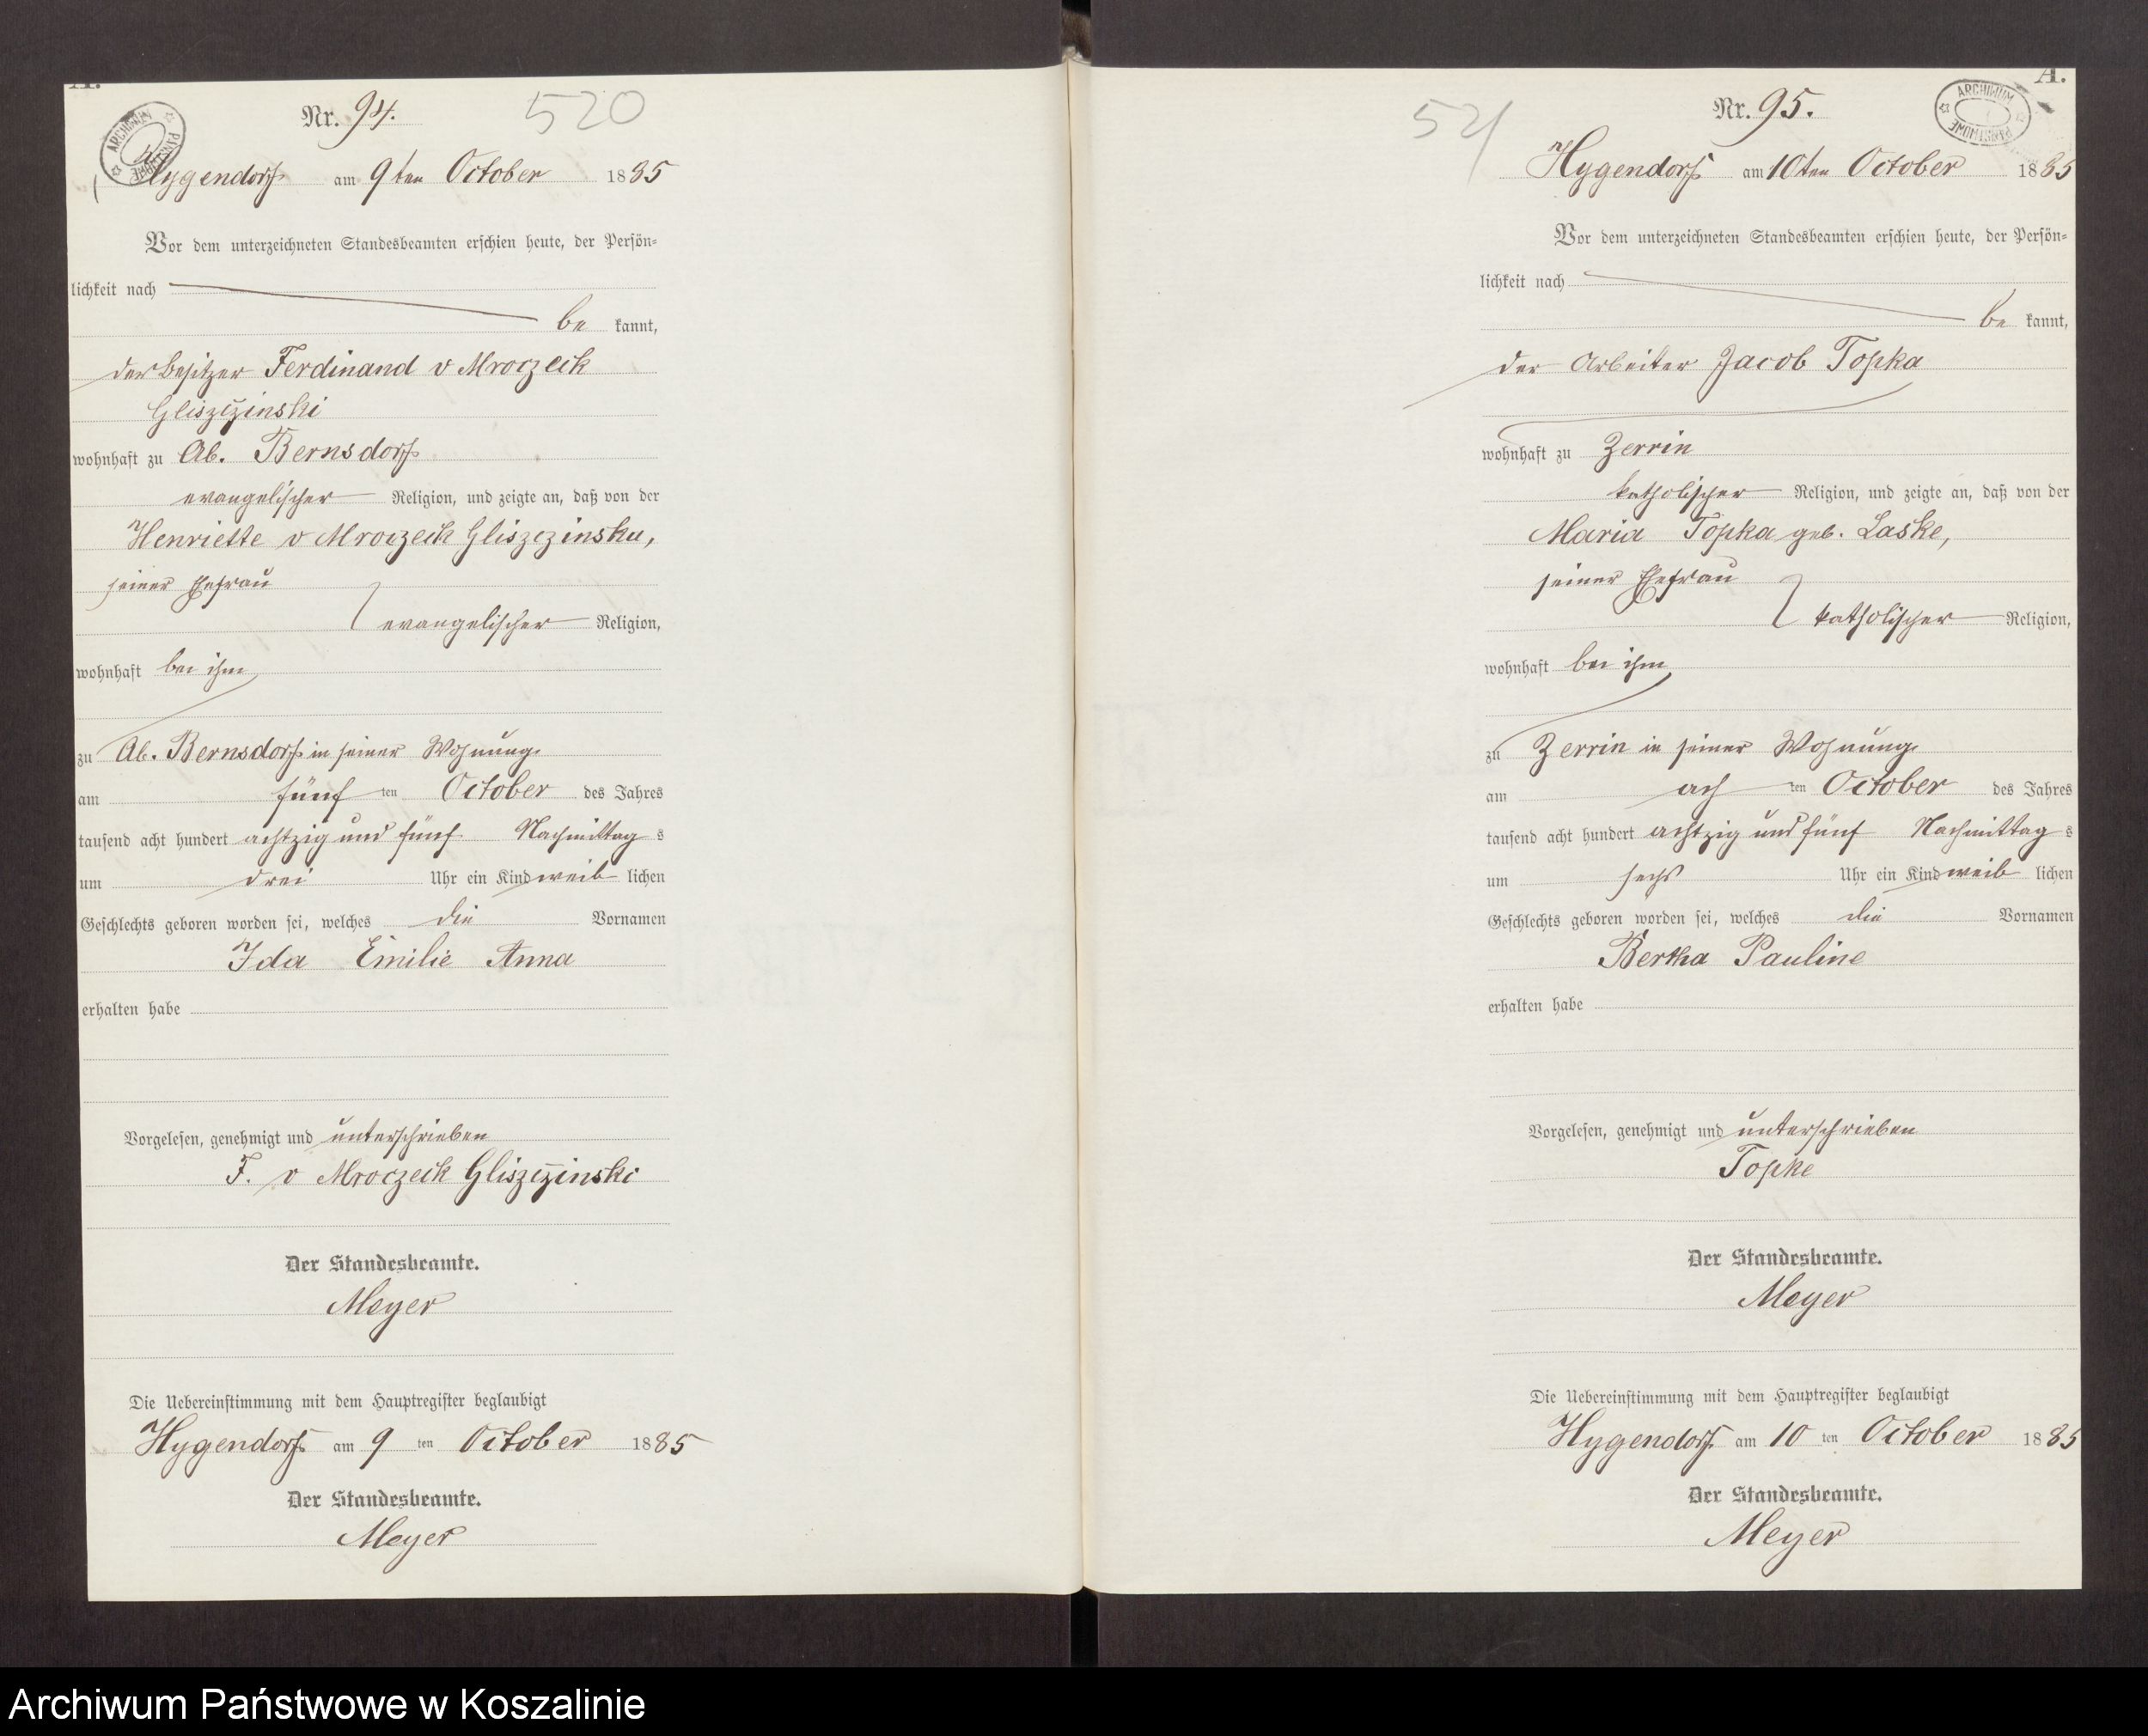 A.
Nr. 94.
520
ARCHIWUM PAŃSTWOWE
Hygendorf am 9ten October 1885
Vor dem unterzeichneten Standesbeamten erschien heute, der Persön-
lichkeit nach
be kannt,
der Besitzer Ferdinand v Mroczeck
Gliszczinski
wohnhaft zu Ab. Bernsdorf
evangelischer Religion, und zeigte an, daß von der
Henriette v Mroczeck Gliszczinska,
seiner Ehefrau
evangelischer Religion,
wohnhaft bei ihm
zu Ab. Bernsdorf in seiner Wohnung
am fünf ten October des Jahres
tausend acht hundert achtzig und fünf Nachmittag s
um drei Uhr ein Kind weib lichen
Geschlechts geboren worden sei, welches die Vornamen
Ida Emilie Anna
erhalten habe
Vorgelesen, genehmigt und unterschrieben
F. v Mroczeck Gliszczinski
Der Standesbeamte.
Meyer
Die Uebereinstimmung mit dem Hauptregister beglaubigt
Hygendorf am 9 ten October 1885
Der Standesbeamte.
Meyer
A.
Nr. 95.
521
ARCHIWUM PAŃSTWOWE
Hygendorf am 10ten October 1885
Vor dem unterzeichneten Standesbeamten erschien heute, der Persön-
lichkeit nach
be kannt,
der Arbeiter Jacob Topka
wohnhaft zu Zerrin
katholischer Religion, und zeigte an, daß von der
Maria Topka geb. Laske,
seiner Ehefrau
katholischer Religion,
wohnhaft bei ihm
zu Zerrin in seiner Wohnung
am ach ten October des Jahres
tausend acht hundert achtzig und fünf Nachmittag s
um sechs Uhr ein Kind weib lichen
Geschlechts geboren worden sei, welches die Vornamen
Bertha Pauline
erhalten habe
Vorgelesen, genehmigt und unterschrieben
Topke
Der Standesbeamte.
Meyer
Die Uebereinstimmung mit dem Hauptregister beglaubigt
Hygendorf am 10 ten October 1885
Der Standesbeamte.
Meyer
Archiwum Państwowe w Koszalinie